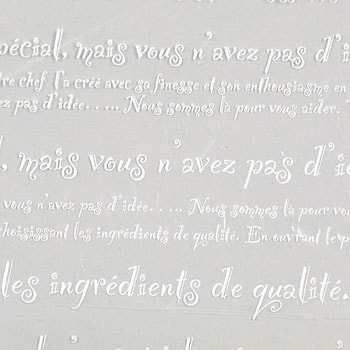 pécial, mais vous n'avez pas d'i
re chef l'a créé avec sa finesse et son enthousiasme en
ez pas d'idée..... Nous sommes là pour vous aider.
l, mais vous n'avez pas d'i
vous n'avez pas d'idée..... Nous sommes là pour vou
choisissant les ingrédients de qualité. En ouvrant le p
les ingrédients de qualité.